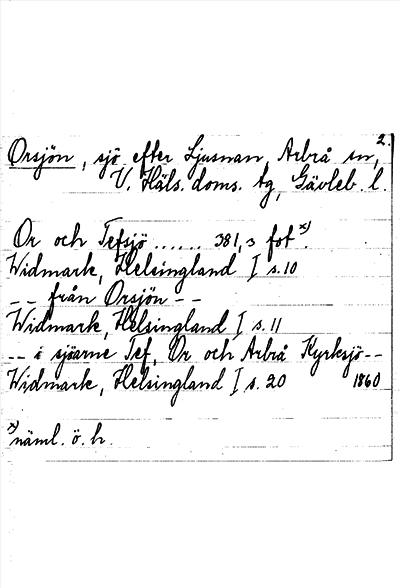 2.
Orsjön, sjö efter Ljusnan, Arbrå sn,
V. Häls. doms. tg, Gävleb. l.
Or och Tefsjö ...... 381,3 fot x).
Widmark, Helsingland I s. 10
-- från Orsjön --
Widmark, Helsingland I s. 11
-- i sjöarne Tef, Or och Arbrå Kyrksjö --
Widmark, Helsingland I s. 20 1860
x) näml. ö. h.